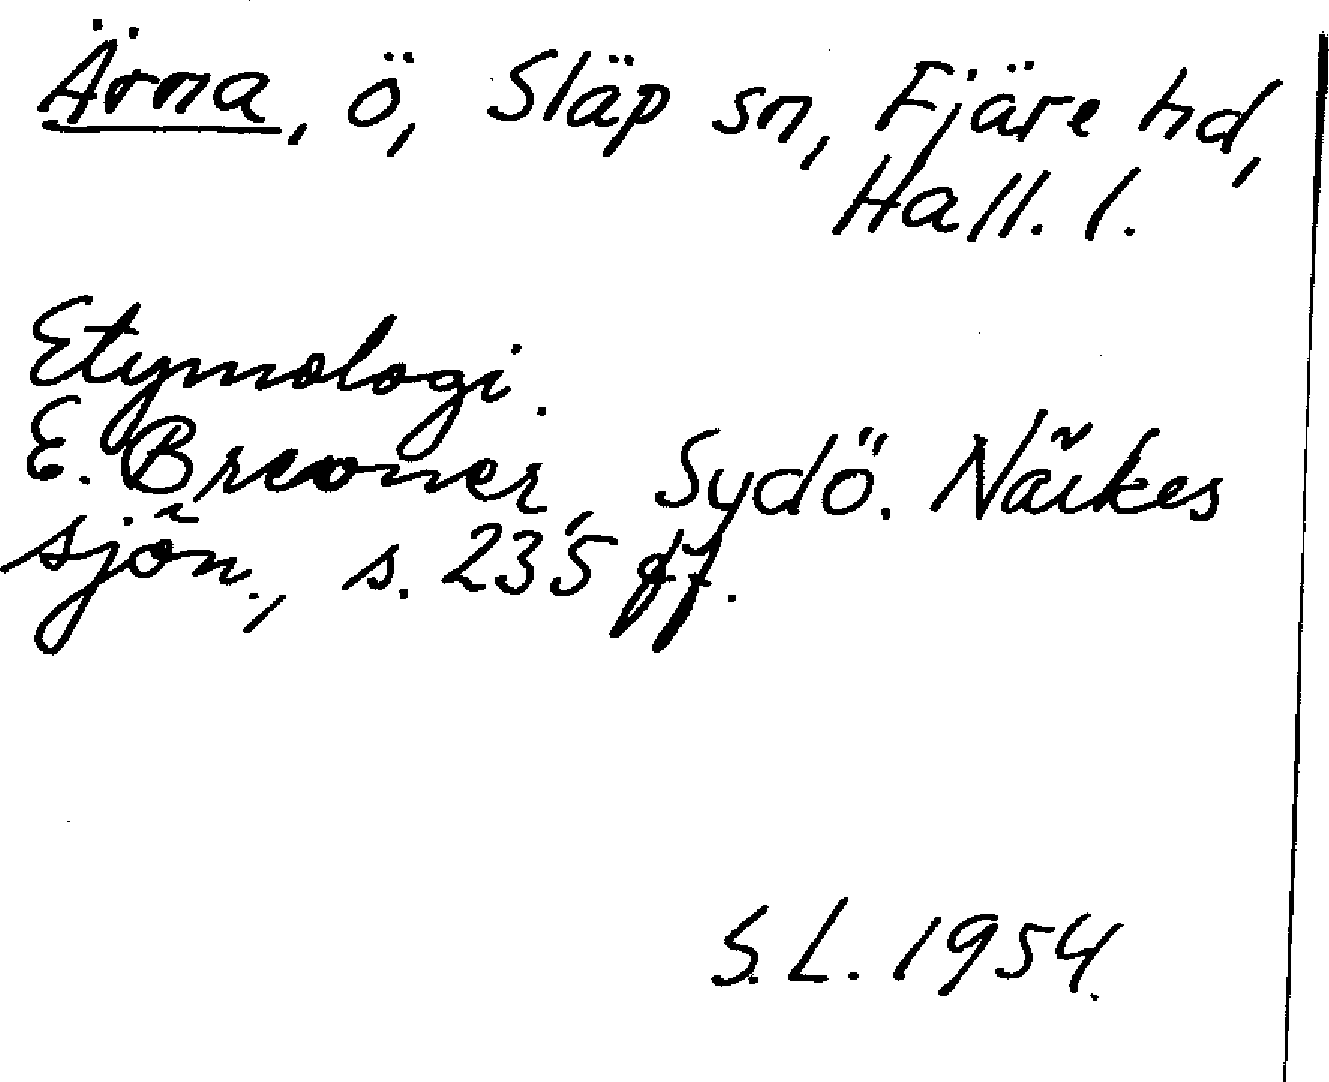 Ärna, ö, Släp sn, Fjäre hd,
Hall. l.
Etymologi.
E. Brevner, Sydö. Närkes
sjön., s. 235 ff.
S. L. 1954.